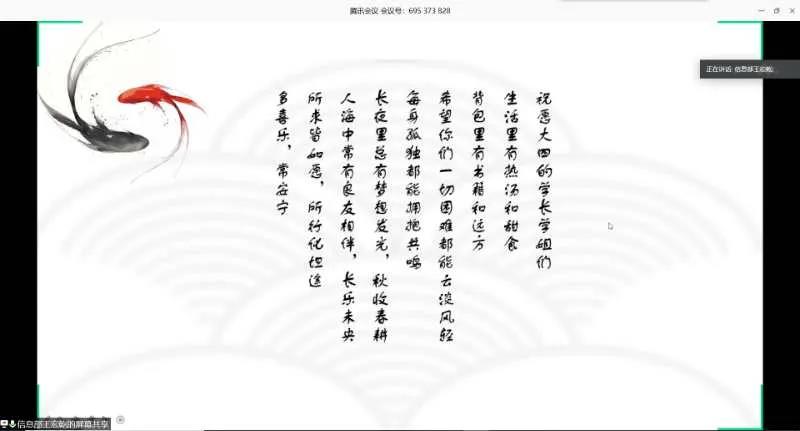 腾讯会议 会议号：695 373 828
正在讲话: 信息部王
祝愿大四的学长学姐们
生活里有热汤和甜食
背包里有书籍和远方
希望你们一切困难都能云淡风轻
每身孤独都能拥抱共鸣
长夜里总有梦想发光，秋收春耕
人海中常有良友相伴，长乐未央
所求皆如愿，所行化坦途
多喜乐，常安宁
信息部王的屏幕共享